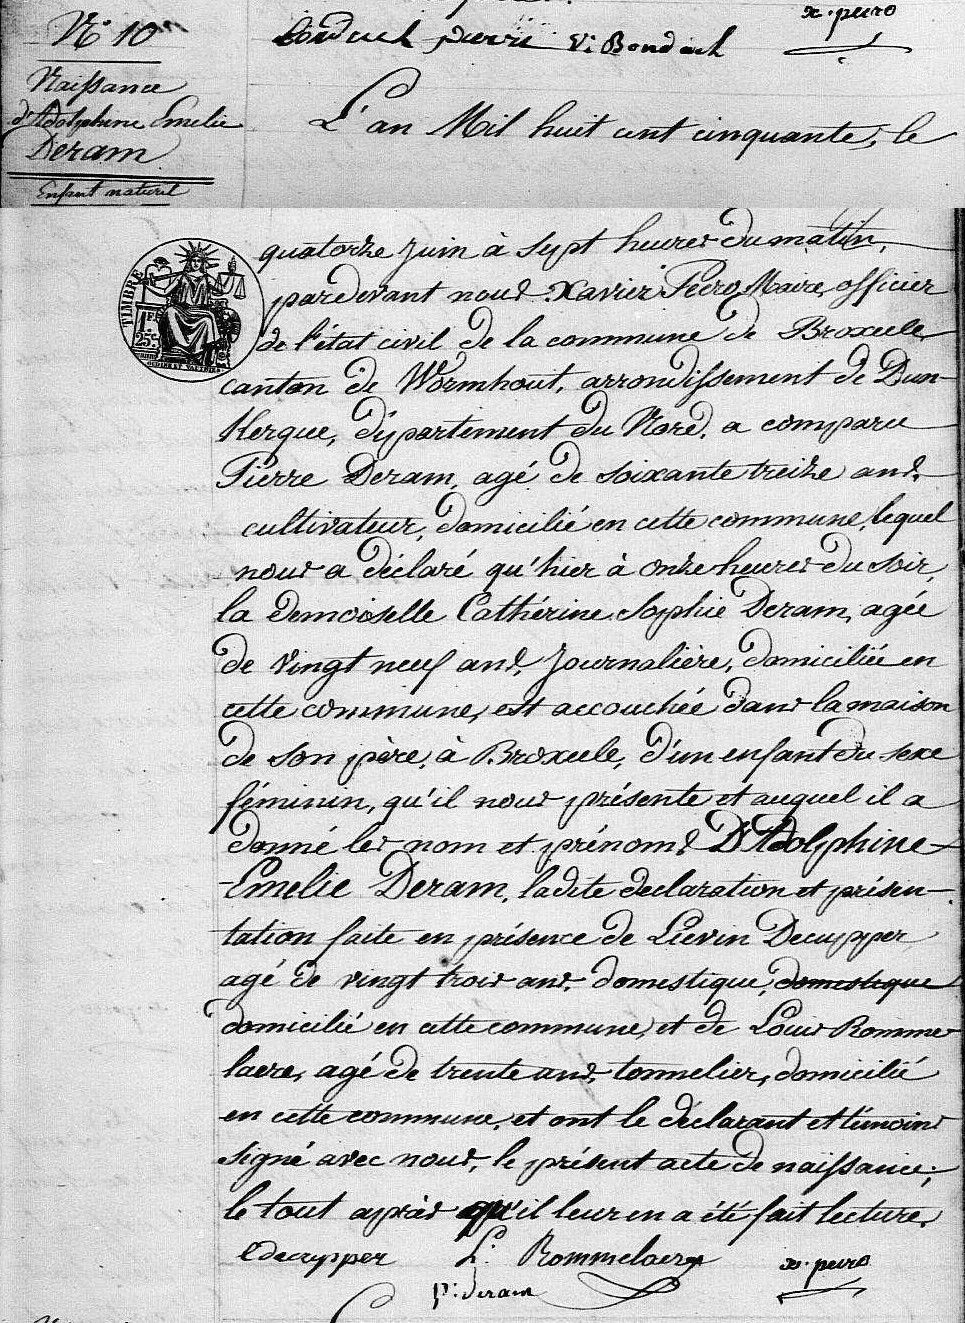 N° 10
Naissance
d'Adolphine Emelie
Deram
Enfant naturel
V. Bonduel
x. peiro
L'an Mil huit cent cinquante, le
quatorze juin à sept heures du matin,
pardevant nous Xavier Peero Maire, officier
de l'état civil de la commune de Broxeele
canton de Wormhout, arrondissement de Dun-
kerque, département du Nord, a comparu
Pierre Deram, agé de soixante treize ans,
cultivateur, domicilié en cette commune, lequel
nous a déclaré qu'hier à onze heures du soir,
la demoiselle Cathérine Sophie Deram, agée
de vingt neuf ans, Journalière, domiciliée en
cette commune, est accouchée dans la maison
de son père, à Broxeele, d'un enfant du sexe
féminin, qu'il nous présente et auquel il a
donné les nom et prénoms D'Adolphine
Emelie Deram, ladite declaration et présen-
tation faite en présence de Lievin Decupper
agé de vingt trois ans, domestique, domestique
domicilié en cette commune, et de Louis Romme-
laere, agé de trente ans, tonnelier, domicilié
en cette commune, et ont le déclarant et témoins
signé avec nous, le présent acte de naissance;
le tout après qu'il leur en a été fait lecture.
TIMBRE
25c
l decupper L. Rommelaere x. peiro
p: deram